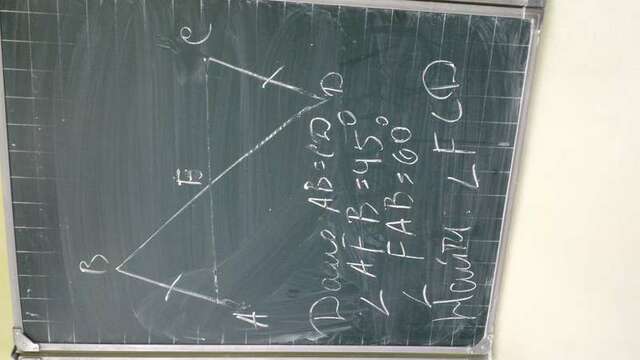 B
C
F
A
D
Дано AB=CD
∠AFB=45°
∠FAB=60°
Найти ∠FCD